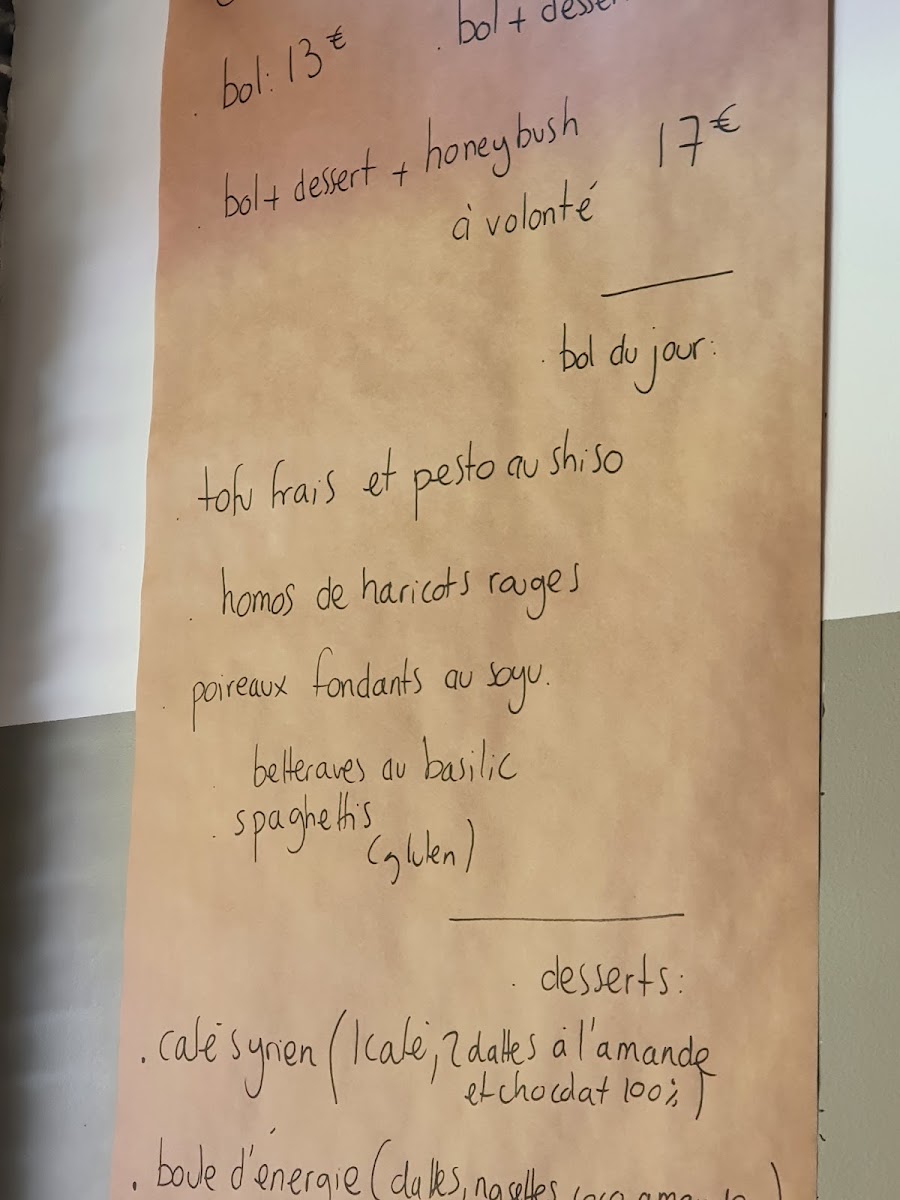 bol: 13€
bol + dessert
bol + dessert + honeybush 17€
à volonté
bol du jour:
tofu frais et pesto au shiso
homos de haricots rouges
poireaux fondants au soyu.
betteraves au basilic
spaghettis
(gluten)
desserts:
. café syrien (1 café, 2 dattes à l'amande
et chocolat 100%)
. boule d'énergie (dattes, noisettes, coco